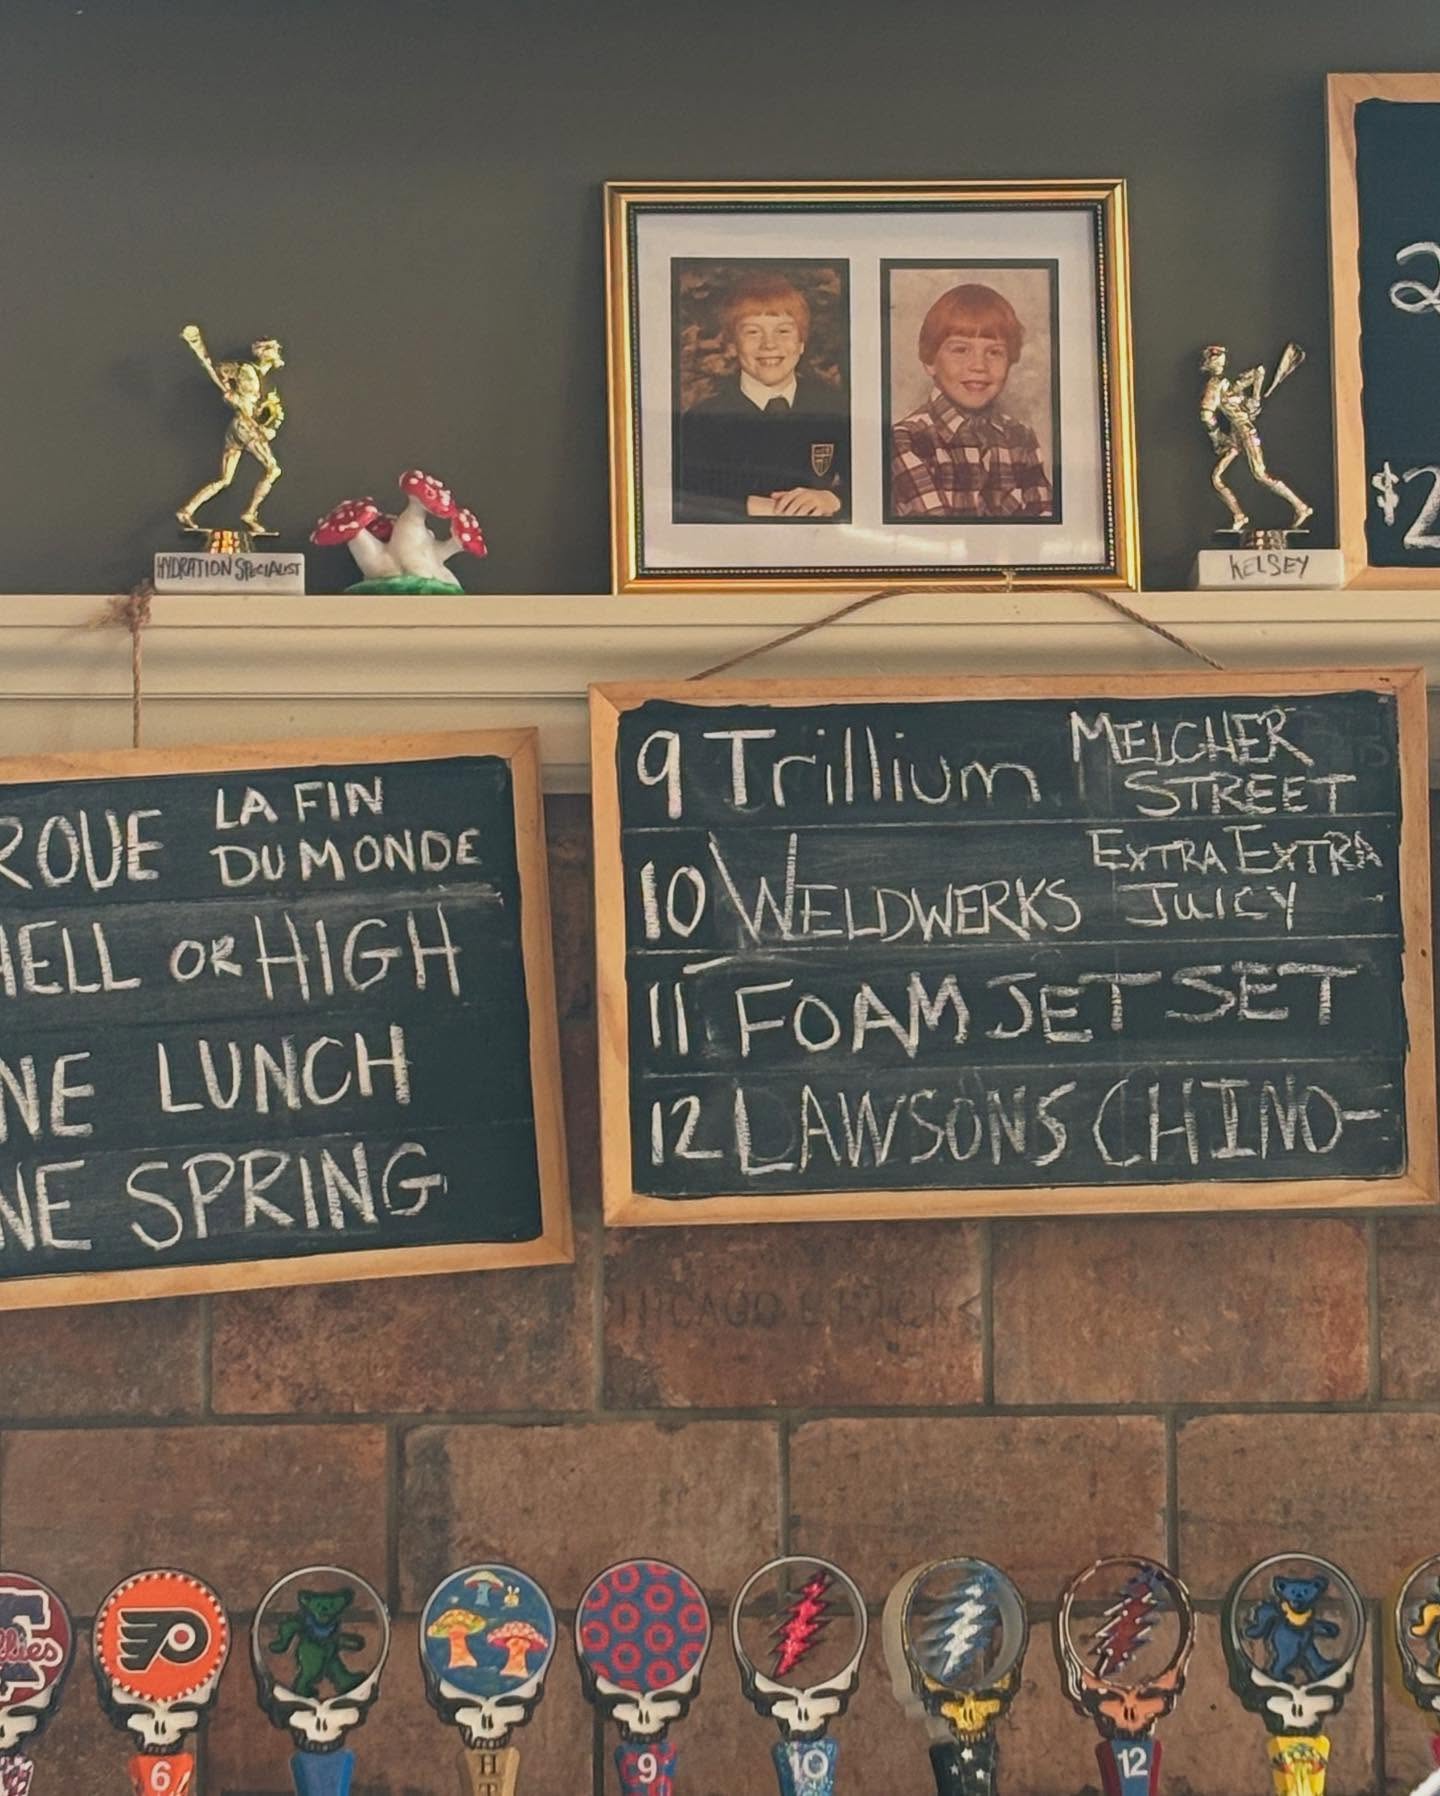 HYDRATION SPECIALIST
KELSEY
2
$2
ROUE LA FIN
DU MONDE
HELL OR HIGH
NE LUNCH
NE SPRING
9 Trillium MELCHER
STREET
10 WELDWERKS EXTRA EXTRA
JUICY
11 FOAM JET SET
12 LAWSONS CHINO-
CHICAGO BRICK
6
H
T
9
10
12